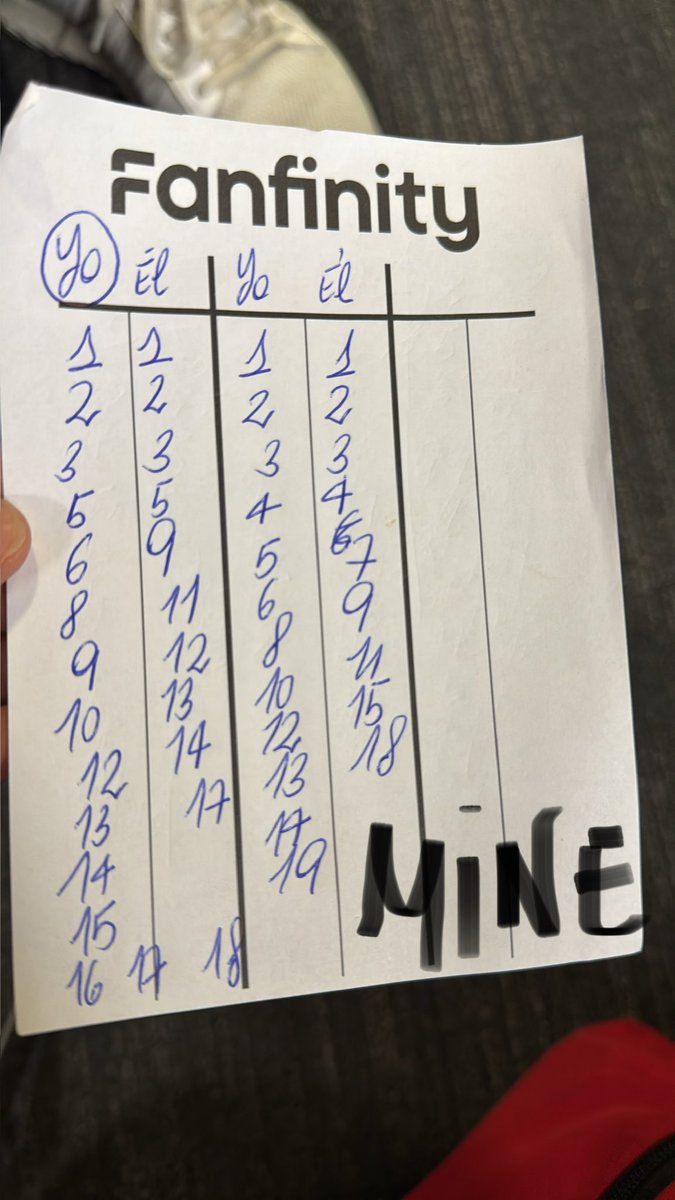 Fanfinity
Yo Él Yo Él
1 1 1 1
2 2 2 2
3 3 3 3
5 5 4 4
6 9 5 7
8 11 6 9
9 12 8 11
10 13 10 15
12 14 12 18
13 17 13
14 17
15 19
16 17 18
MINE